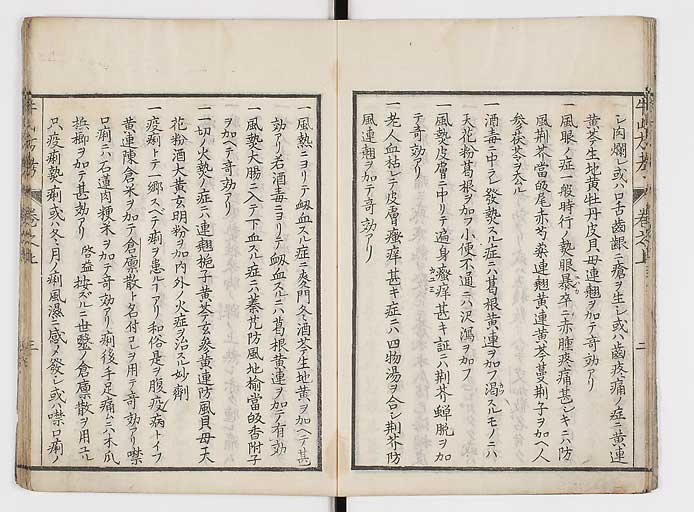 シ肉爛レ或ハ口舌齒齦ニ瘡ヲ生シ或ハ齒疼痛ノ症ニ黄連
黄芩生地黄牡丹皮貝母連翹ヲ加テ奇効アリ
一風眼ノ症一般時行ノ熱眼暴卒ニ赤腫疼痛甚シキニハ防
風荆芥當皈尾赤芍藥連翹黄連黄芩蔓荆子ヲ加人
參茯苓ヲ去ル
一酒毒ニ中ラレ發熱スル症ニハ葛根黄連ヲ加フ渴スルモノニハ
天花粉葛根ヲ加ヲ小便不通ニハ沢瀉ヲ加フ
一風熱皮膚ニ中リテ遍身瘙痒甚キ証ニハ荆芥蟬脱ヲ加
テ奇効アリ
一老人血枯レテ皮膚瘙痒甚キ症ニハ四物湯ヲ合シ荆芥防
風連翹ヲ加テ奇効アリ
一風熱ニヨリテ衂血スル症ニ麥門冬酒芩生地黄ヲ加ヘテ甚
効アリ若酒毒ニヨリテ衂血スルニハ葛根黄連ヲ加テ有効
一風熱大腸ニ入テ下血スル症ニハ蓁艽防風地榆當皈香附子
ヲ加ヘテ奇効アリ
一一切ノ火熱ノ症ニハ連翹梔子黄芩玄參黄連防風貝母天
花粉酒大黄玄明粉ヲ加内外ノ火症ヲ治スル妙劑
一疫痢トテ一郷スヘテ痢ヲ患ルヿアリ和俗是ヲ腹疫病トイフ
黄連陳倉米ヲ加テ倉廩散ト名付コレヲ用テ奇効アリ噤
口痢ニハ石蓮肉粳米ヲ加テ奇効アリ痢後手足痛ニハ木瓜
檳榔ヲ加テ甚効アリ 啓益按スルニ世醫ノ倉廩散ヲ用ユル
只疫痢熱痢或ハ冬月ノ痢風濕ニ感メ發シ或ハ噤口痢ノ